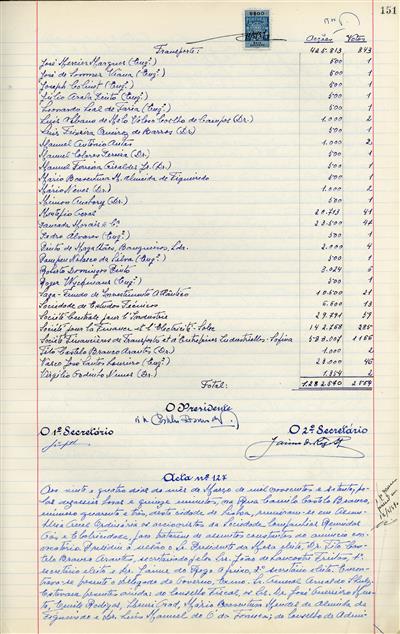 151
Acções Votos
Transporte: 425.813 843
José Mercier Marques (Eng.º) 500 1
José de Sommer Viana (Eng.º) 500 1
Joseph Cobinet (Eng.º) 500 1
Júlio Ayala Leite (Eng.º) 500 1
Leonardo Leal de Faria (Eng.º) 500 1
Luís Albano de Melo Veloso Coelho de Campos (Dr.) 1.000 2
Luís Teixeira Queiroz de Barros (Dr.) 500 1
Manuel António Antas 1.000 2
Manuel Colares Pereira (Dr.) 500 1
Manuel Ferreira (Dr.) 500 1
Mário Boaventura M. Almeida de Figueiredo 500 1
Mário Neves (Dr.) 1.000 2
(Dr.) 500 1
Montepio Geral 20.713 41
Pancada Morais & C.ª 23.500 47
Pedro Alvares (Eng.º) 500 1
Pinto de Magalhães, Banqueiros, Lda. 2.000 4
da Silva (Eng.º) 500 1
Domingos Pinto 3.024 6
Roger Wyckmans (Eng.º) 500 1
Fundo de Investimento Atlântico 10.500 21
Sociedade de Estudos Técnicos 6.600 13
Société Centrale pour l'Industrie 29.791 59
Société pour la Finance et l'Electricité 142.768 285
Société Financière de Transports et d'Entreprises Industrielles - Sofina 583.007 1166
Tito Castelo Branco Arantes (Dr.) 1.000 2
Vasco José Santos Loureiro (Eng.º) 23.000 46
Virgílio Godinho Nunes (Dr.) 1.354 2
Total: 1.282.540 2.554
O Presidente
O 1º Secretário O 2º Secretário
Jaime de
Acta nº 127
Aos vinte e quatro dias do mês de Março de mil novecentos e setenta, pe-
las dezasseis horas e quinze minutos, na Rua Camilo Castelo Branco,
número quarenta e três, desta cidade de Lisboa, reuniram-se em Assem-
bleia Geral Ordinária os accionistas da Sociedade Companhias Reunidas
Gás e Electricidade, para tratarem de assuntos constantes do anúncio con-
vocatório. Presidiu a sessão o Presidente da Mesa eleita, Dr. Tito Cas-
telo Branco Arantes, secretariado pelo Dr. João de Freitas, 1º
secretário eleito e Dr. Jaime do Rego Afreixo, 2º secretário eleito. Encon-
trava-se presente o delegado do Governo, Exmo. Sr. General Arnaldo
Estavam presentes ainda: do Conselho Fiscal, os Srs. Dr. José
Mário Boaventura Mendes de Almeida de
Figueiredo e Dr. Luís Manuel de C. da Fonseca; do Conselho de Admi-